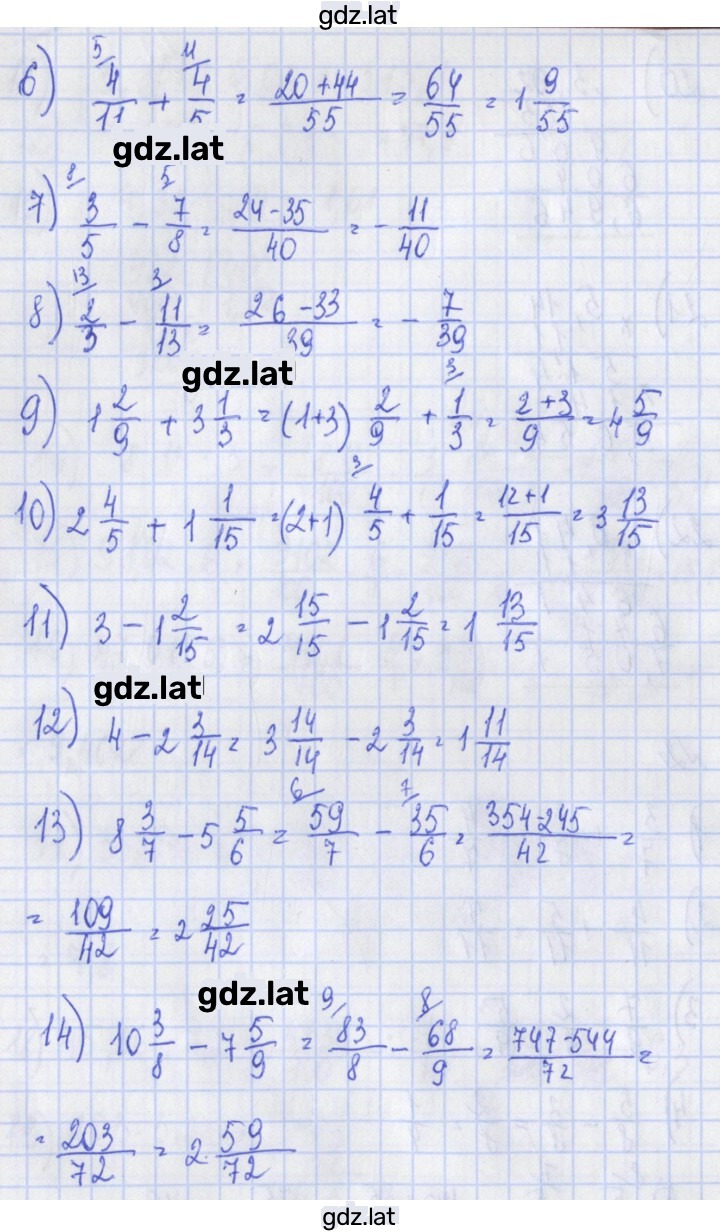 gdz.lat
6) 5/ 4/11 + 11/ 4/5 = (20+44)/55 = 64/55 = 1 9/55
gdz.lat
7) 8/ 3/5 - 5/ 7/8 = (24-35)/40 = - 11/40
8) 13/ 2/3 - 3/ 11/13 = (26-33)/39 = - 7/39
gdz.lat
9) 1 2/9 + 3 1/3 = (1+3) 2/9 + 3/ 1/3 = (2+3)/9 = 4 5/9
10) 2 4/5 + 1 1/15 = (2+1) 3/ 4/5 + 1/15 = (12+1)/15 = 3 13/15
11) 3 - 1 2/15 = 2 15/15 - 1 2/15 = 1 13/15
gdz.lat
12) 4 - 2 3/14 = 3 14/14 - 2 3/14 = 1 11/14
13) 8 3/7 - 5 5/6 = 6/ 59/7 - 7/ 35/6 = (354-245)/42 =
= 109/42 = 2 25/42
gdz.lat
14) 10 3/8 - 7 5/9 = 9/ 83/8 - 8/ 68/9 = (747-544)/72 =
= 203/72 = 2 59/72
gdz.lat